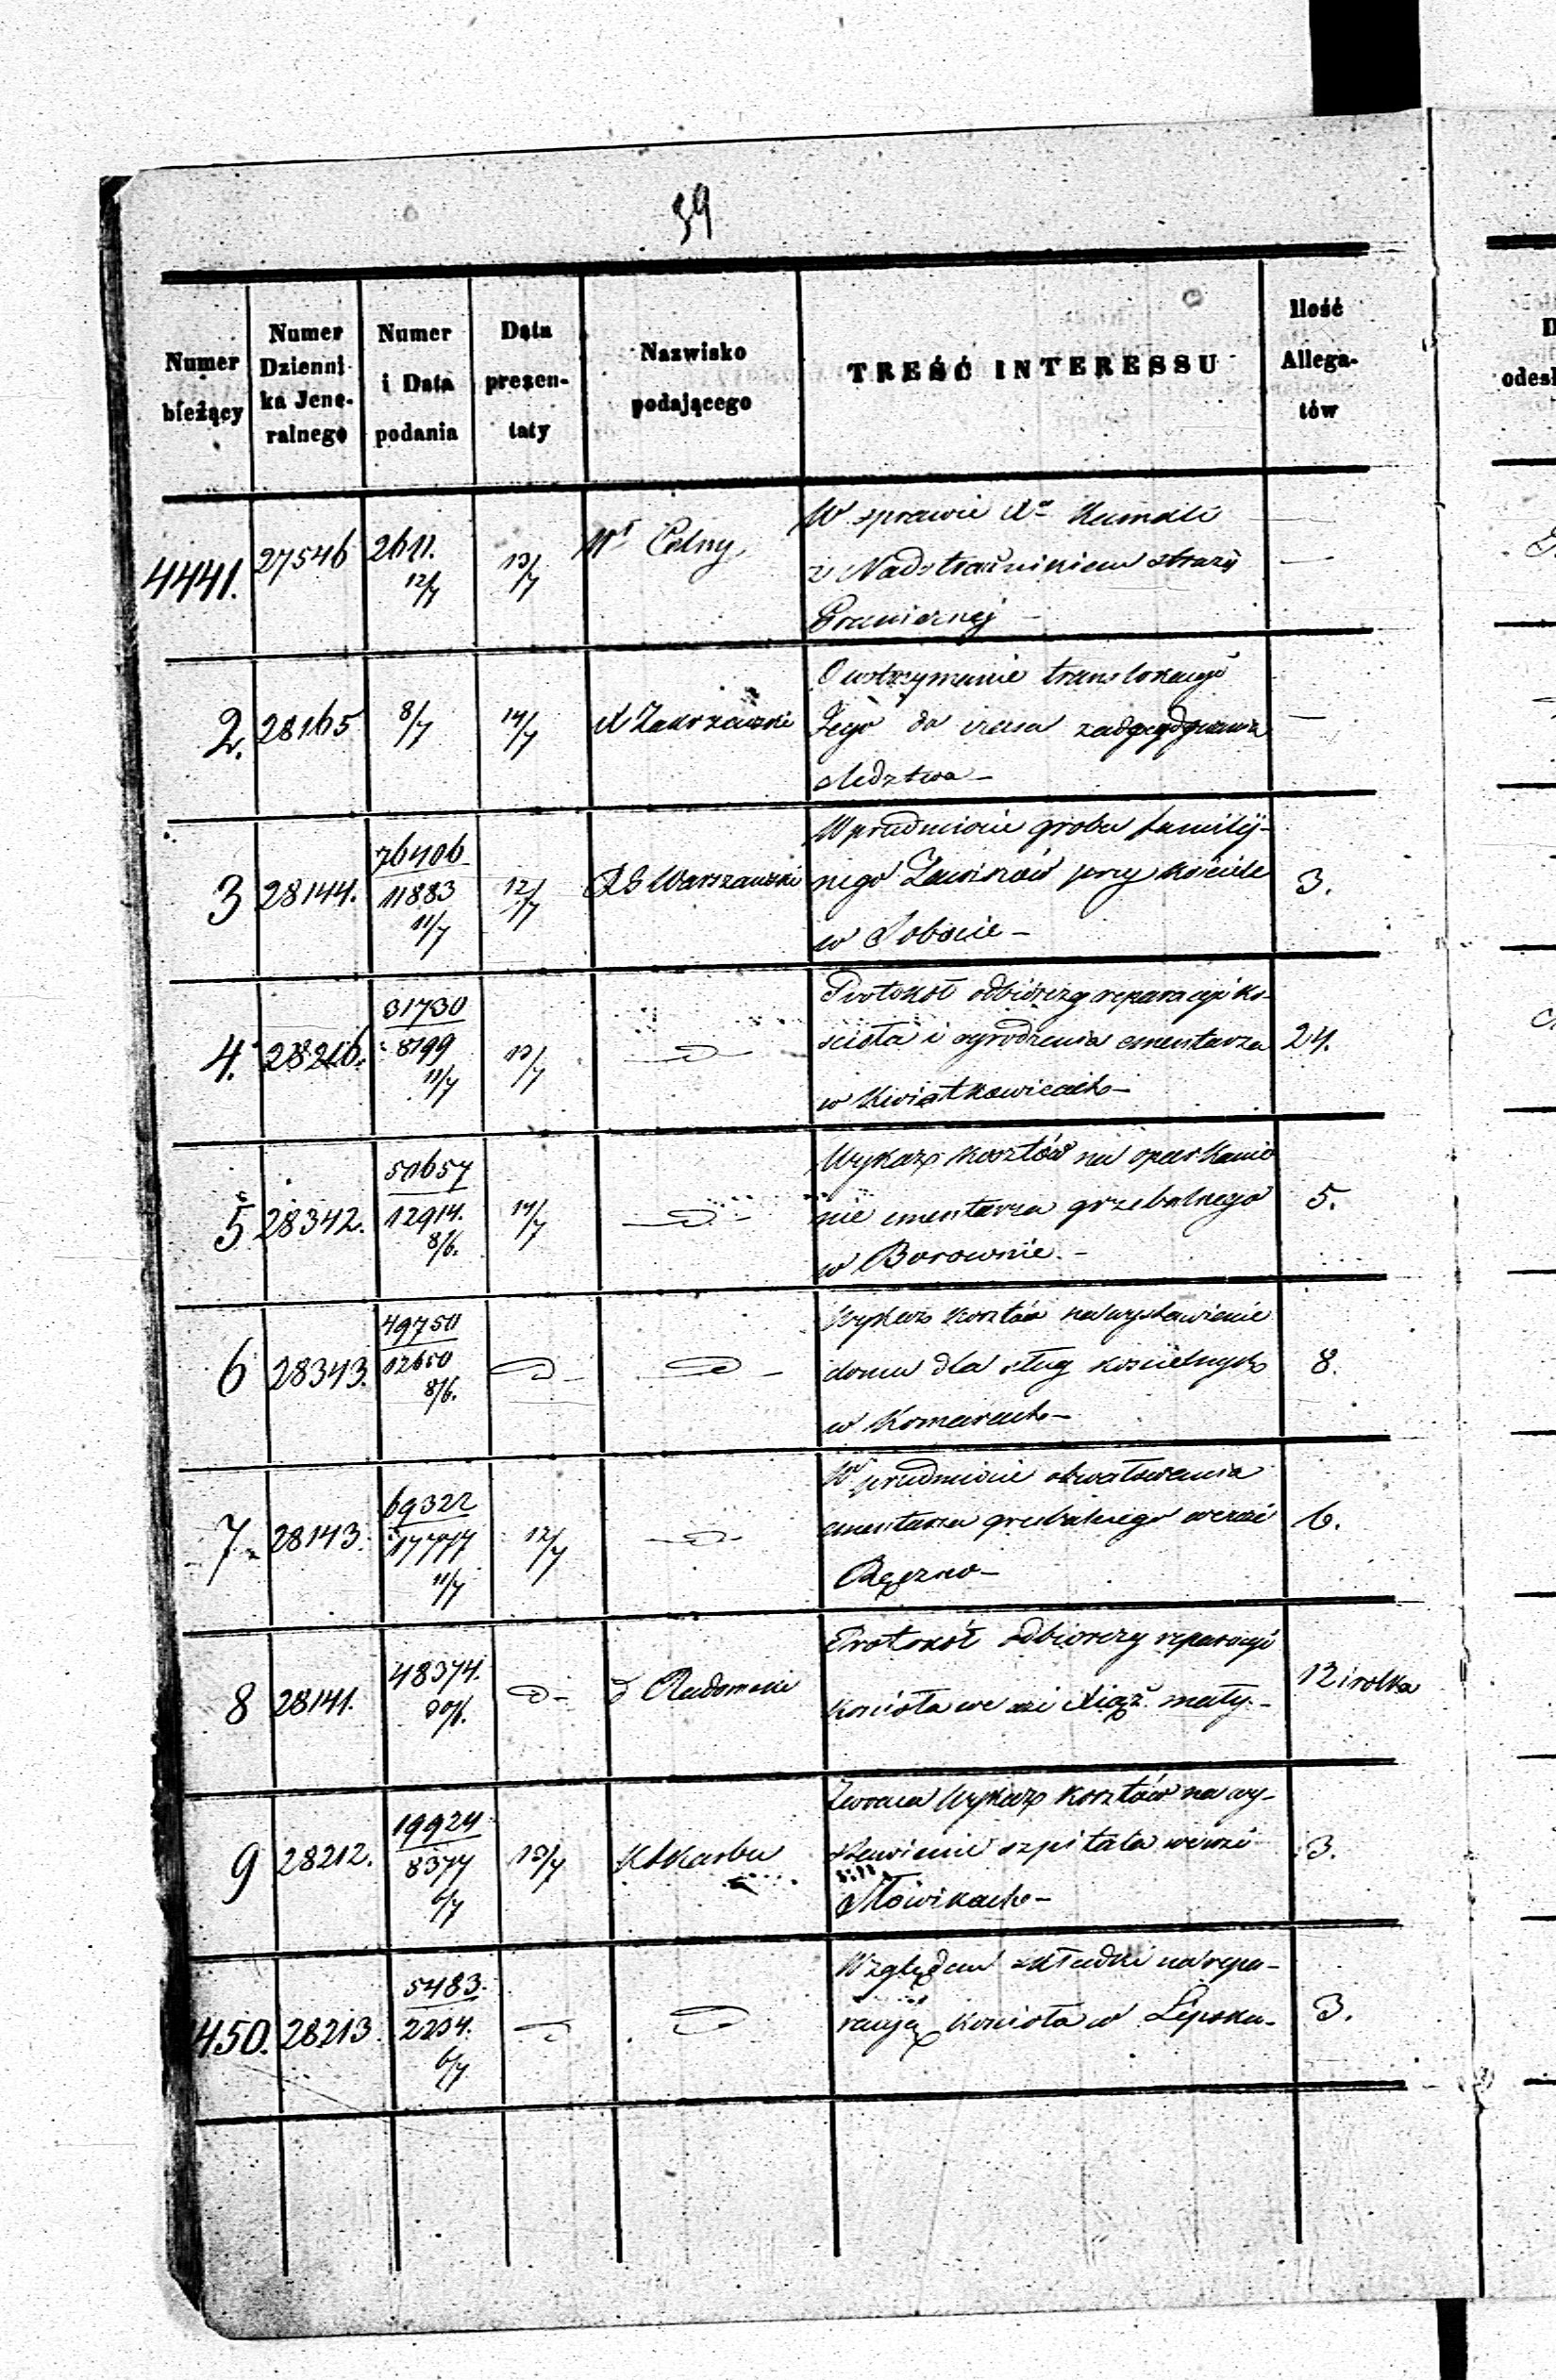 39
Numer bieżący
Numer Dzienni- ka Jene- ralnego
Numer i Data podania
Data prezen- taty
Nazwisko podającego
TREŚĆ INTERESSU
Ilość Allega- tów
4441. 27546 2611. 12/7 13/7 Celny W sprawie Xa
z Nadstrażnikiem straży —
Granicznej —
2. 28165 8/7 14/7 X Zakrzewski O wstrzymanie translokacyi
Jego do czasu —
śledztwa —
3 28144. 76406 11883 11/7 12/7 RG Warszawski W przedmiocie grobu familij-
nego Zawiszów przy kościele 3.
w Sobocie —
4. 28216. 31730 8199 11/7 13/7 Protokół odbiorczy reparacyi ko-
ścioła i ogrodzenia cmentarza 24.
w Kwiatkowicach —
5 28342. 50657 12914. 8/6. 14/7 Wykaz kosztów na oparkanie
nie cmentarza grzebalnego 5.
w Borownie. —
6 28343. 49750 12650 8/6. Wykaz kosztów na wystawienie
domu dla sług kościelnych 8.
w Komarach —
7 28143. 69322 17777 11/7 12/7 W przedmiocie obwałowania
cmentarza grzebalnego we wsi 6.
Ręczno —
8 28141. 48374. 30/6. Radomski Protokół odbiorczy reparacyi
kościoła we wsi Xiąż mały. — 12 i rolka
9 28212. 19924 8377 6/7 13/7 K Skarbu Zwraca Wykaz kosztów na wy-
stawienie szpitala we wsi 3.
Słowikach —
450. 28213 5483. 2234. 6/7 Względem składki na repa-
racyją kościoła w Lipsku. 3.